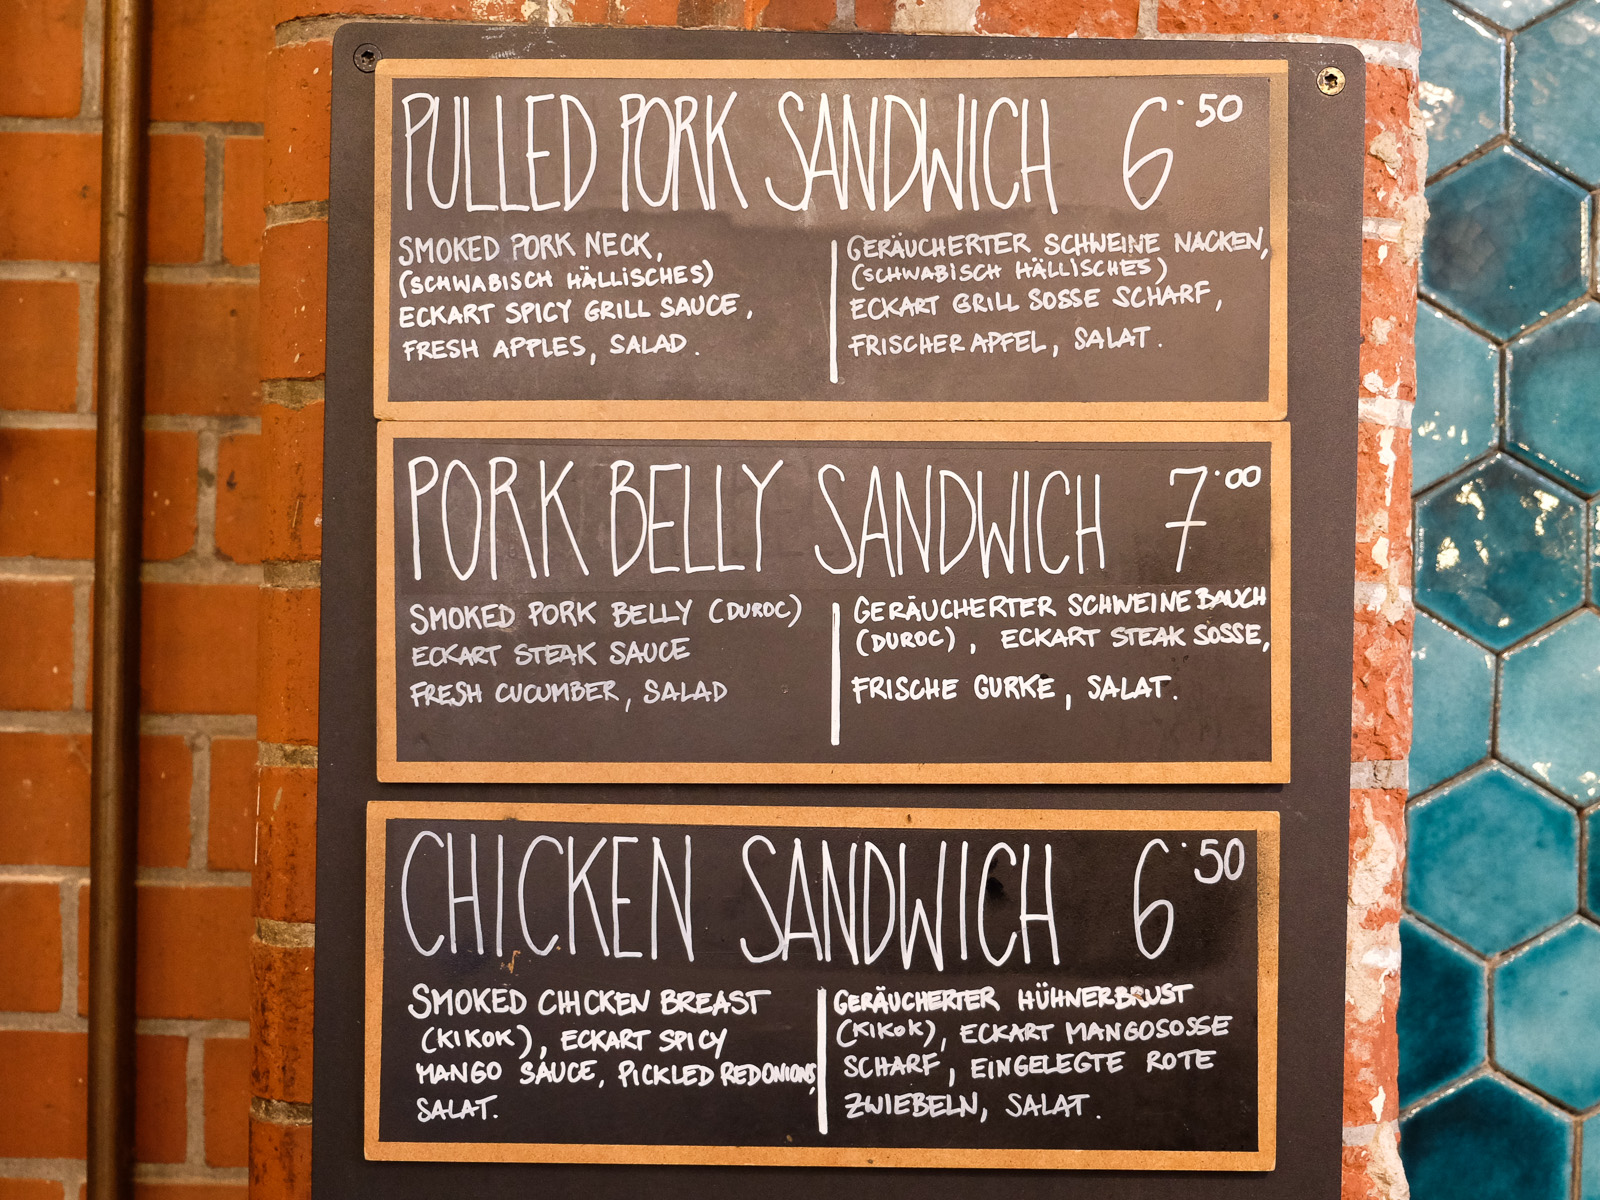 PULLED PORK SANDWICH 6.50
SMOKED PORK NECK,
(SCHWABISCH HÄLLISCHES)
ECKART SPICY GRILL SAUCE,
FRESH APPLES, SALAD.
GERÄUCHERTER SCHWEINE NACKEN,
(SCHWABISCH HÄLLISCHES)
ECKART GRILL SOSSE SCHARF,
FRISCHER APFEL, SALAT.
PORK BELLY SANDWICH 7.00
SMOKED PORK BELLY (DUROC)
ECKART STEAK SAUCE
FRESH CUCUMBER, SALAD
GERÄUCHERTER SCHWEINEBAUCH
(DUROC), ECKART STEAK SOSSE,
FRISCHE GURKE, SALAT.
CHICKEN SANDWICH 6.50
SMOKED CHICKEN BREAST
(KIKOK), ECKART SPICY
MANGO SAUCE, PICKLED RED ONIONS,
SALAT.
GERÄUCHERTER HÜHNERBRUST
(KIKOK), ECKART MANGOSOSSE
SCHARF, EINGELEGTE ROTE
ZWIEBELN, SALAT.